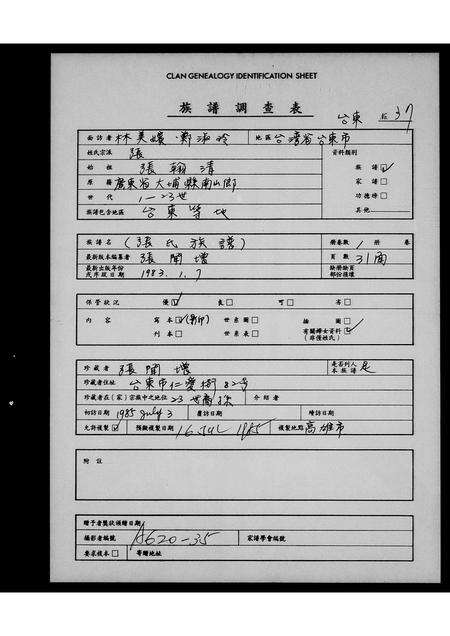 CLAN GENEALOGY IDENTIFICATION SHEET
族譜調查表
台東 37
面訪者 林美嬡·鄭淑玲 地區 台灣省台東市
姓氏宗派 張 資料類別
始祖 張翰清 族譜☑
原籍 廣東省大埔縣南山鄉 家譜□
世代 1—23世 功德榜□
族譜包含地區 台東等地 其他
族譜名 (張氏族譜) 冊卷數 1 冊 卷
最新版本編纂者 張開增 頁數 31面
最新出版年份 或序跋日期 1983.1.7 缺冊缺頁 部份損壞
保管狀況 優☑ 良□ 可□ 否□
內容 寫本☑(影印) 世系圖□ 插圖□
刊本□ 世系表□ 有關婦女資料☑ (非僅姓氏)
珍藏者 張開增 是否列入 本族譜 是
珍藏者住址 台東市仁愛街82号
珍藏者在(家)宗族中之地位 23世裔孫 介紹者
初訪日期 1985 July 3 覆訪日期 續訪日期
允許複製☑ 預擬複製日期 16 JUL 1985 複製地點 高雄市
附註
贈予者獎狀頒贈日期
攝影者編號 A620-35 家譜學會編號
要求複本□ 寄贈地址